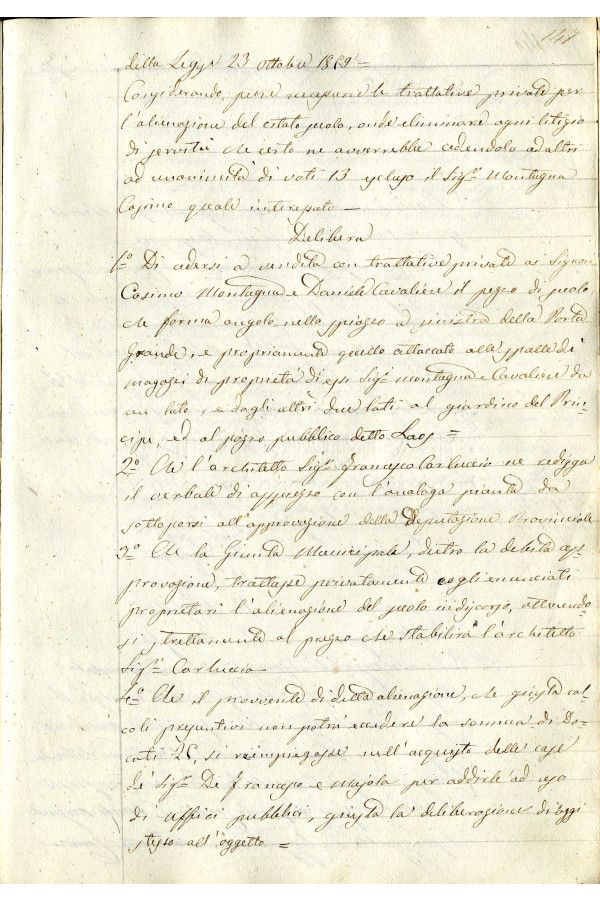 147
della Legge 23 ottobre 1859 =
Considerando, pure necessarie le trattative private per
l'alienazione del citato suolo, onde eliminare ogni litigio
di servitù che certo ne avverrebbe cedendolo ad altri
ad unanimità di voti 13 escluso il Sigr Montagna
Cosimo quale interessato —
Delibera
1º Di cedersi a vendita con trattative private ai Signori
Cosimo Montagna e Daniele Cavaliere il pezzo di suolo,
che forma angolo nello spiazzo a sinistra della Porta
Grande, e propriamente quello attaccato alle spalle dei
magazzi di proprietà di essi Sigri Montagna e Cavaliere da
un lato, e dagli altri due lati al giardino del Prin-
cipe, ed al pozzo pubblico detto =
2º Che l'architetto Sigr Francesco Carluccio ne rediga
il verbale di apprezzo con l'analoga pianta da
sottoporsi all'approvazione della Deputazione Provinciale
3º Che la Giunta Municipale, dietro la debita ap-
provazione, trattasse privatamente cogli enunciati
proprietari l'alienazione del suolo in discorso, attenendo-
si strettamente al prezzo che stabilirà l'architetto
Sigr Carluccio
4º Che il provvento di detta alienazione, che giusta cal-
coli presuntivi non potrà eccedere la somma di Do-
cati 25, si reimpiegasse nell'acquisto delle case
de' Sigri De Francesco e Majola per addirle ad uso
di uffici pubblici, giusta la deliberazione di oggi
stesso all'oggetto =